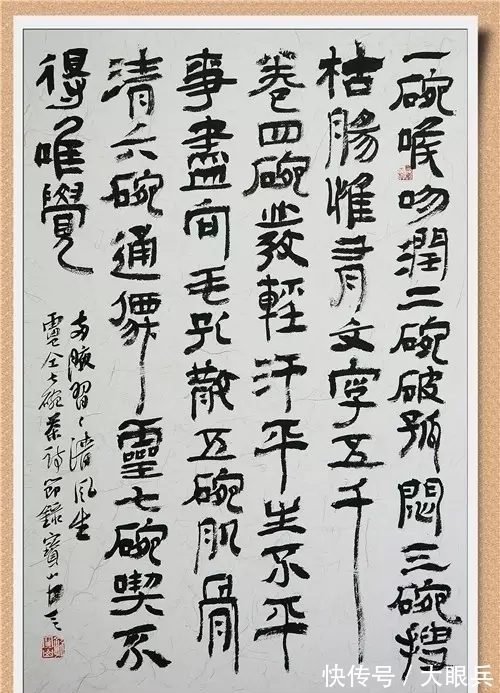 一碗喉吻潤二碗破孤悶三碗搜
枯腸惟有文字五千
卷四碗發輕汗平生不平
事盡向毛孔散五碗肌骨
清六碗通僊靈七碗喫不
得唯覺
两腋習〻清风生
盧仝七碗茶诗節録寶山
快传号 / 大眼兵